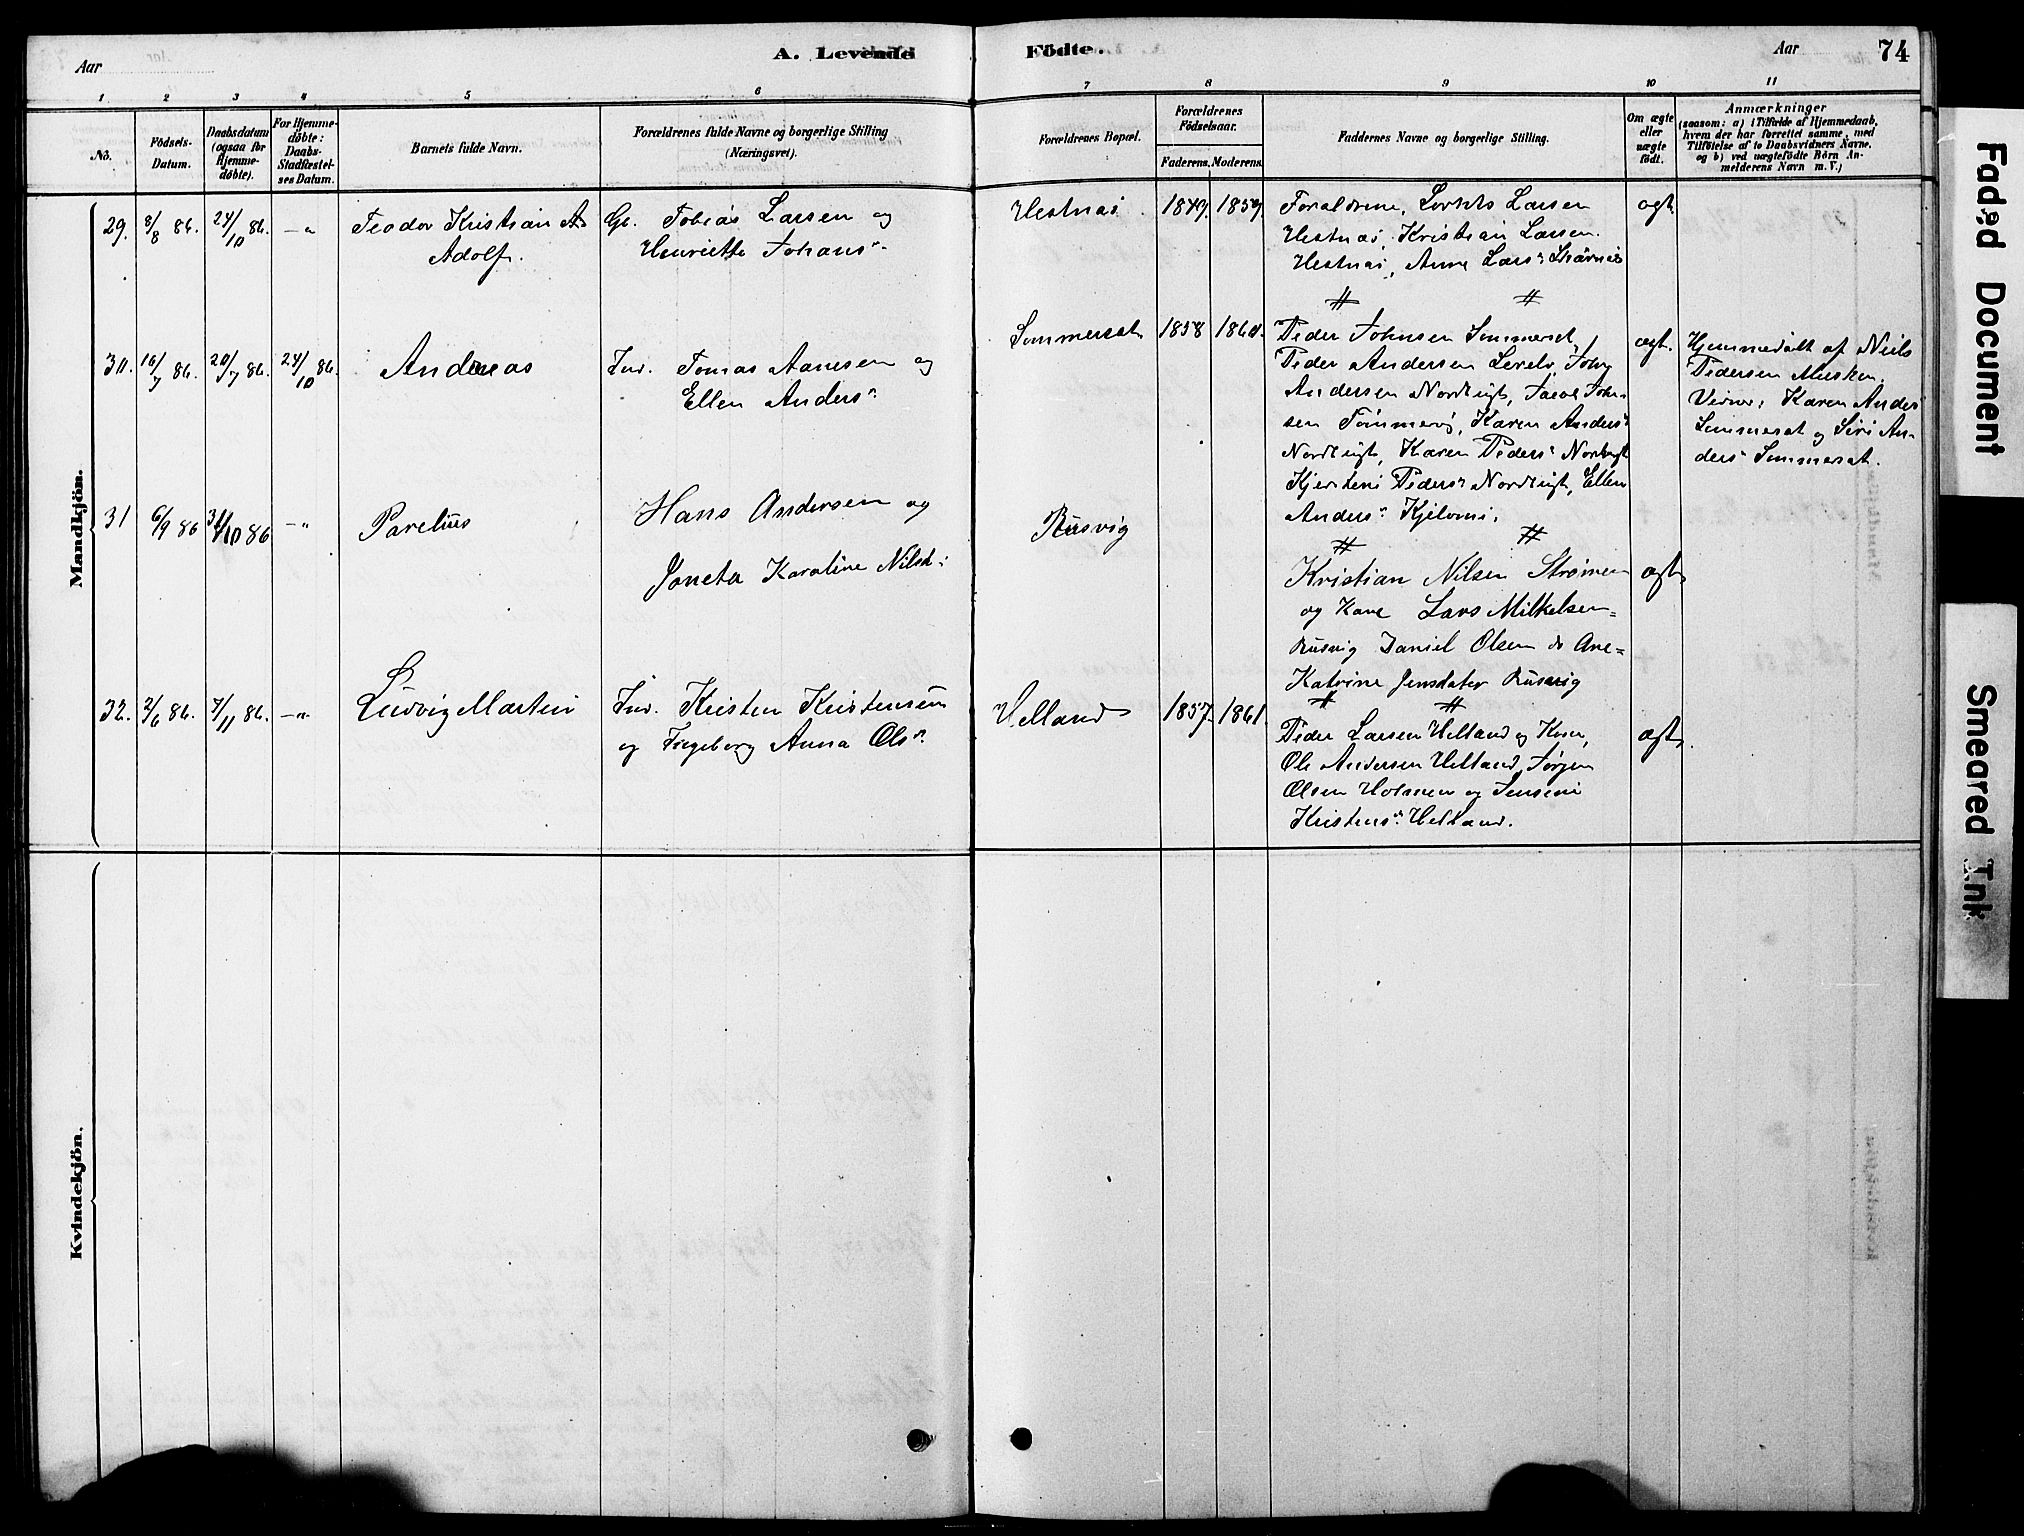 A. Levende Födte.
Aar
Aar
74
1 2 3 4 5 6 7 8 9 10 11
No.
Födsels-Datum.
Daabsdatum (ogsaa for Hjemme-döbte).
For Hjemme-döbte: Daabs-Stadfæstel-ses Datum.
Barnets fulde Navn.
Forældrenes fulde Navne og borgerlige Stilling (Næringsvei).
Forældrenes Bopæl.
Forældrenes Födselsaar.
Faderens. Moderens.
Faddernes Navne og borgerlige Stilling.
Om ægte eller uægte födt.
Anmærkninger
(saasom: a) i Tilfælde af Hjemmedaab,
hvem der har forrettet samme, med
Tilföielse af to Daabsvidners Navne,
og b) ved uægtefödte Börn An-
melderens Navn m. V.)
Mandkjön.
29. 8/8 86. 24/10 86. —"
Teodor Kristian
Adolf.
Gb. Tobias Larsen og
Henriette Johans
Hestnæs 1849. 1859.
Forældrene, Larsen
Hestnæs, Kristian Larsen
Hestnæs, Anne Lars
ægt.
30. 16/7 86. 20/7 86. 24/10 86.
Andreas
Ind. Tomas Aanesen og
Ellen Anders
Sommerset 1858 1860.
Peder Johnsen Sommerset,
Peder Andersen John
Andersen Nordbugt, Jacob John-
sen Tømmerø, Karen Anders
Nordbugt, Karen Peders Nordbugt
Peders Nordbugt, Ellen
Anders
ægt.
Hjemmedøbt af Niels
Pedersen Musken
Vidner: Karen Anders
Sommerset og Siri An-
ders Sommerset.
31 6/9 86 31/10 86 —"
Parelius
Hans Andersen og
Joneta Karoline Nilsd:
Rusvig
Kristian Nilsen Strømen
og Kone Lars Mikkelsen
Rusvig Daniel Olsen do Ane
Katrine Jensdater Rusvig
ægt.
32. 2/6 86. 7/11 86. —"
Ludvig Martin
Ind. Kristen Kristensen
og Ingeborg Anna Ols
Helland 1857. 1861.
Peder Larsen Helland og Kone,
Ole Andersen Helland, Jørgen
Olsen Holmen og Jensine
Kristens Helland.
ægt.
Kvindekjön.
Faded Document
Smeared Ink